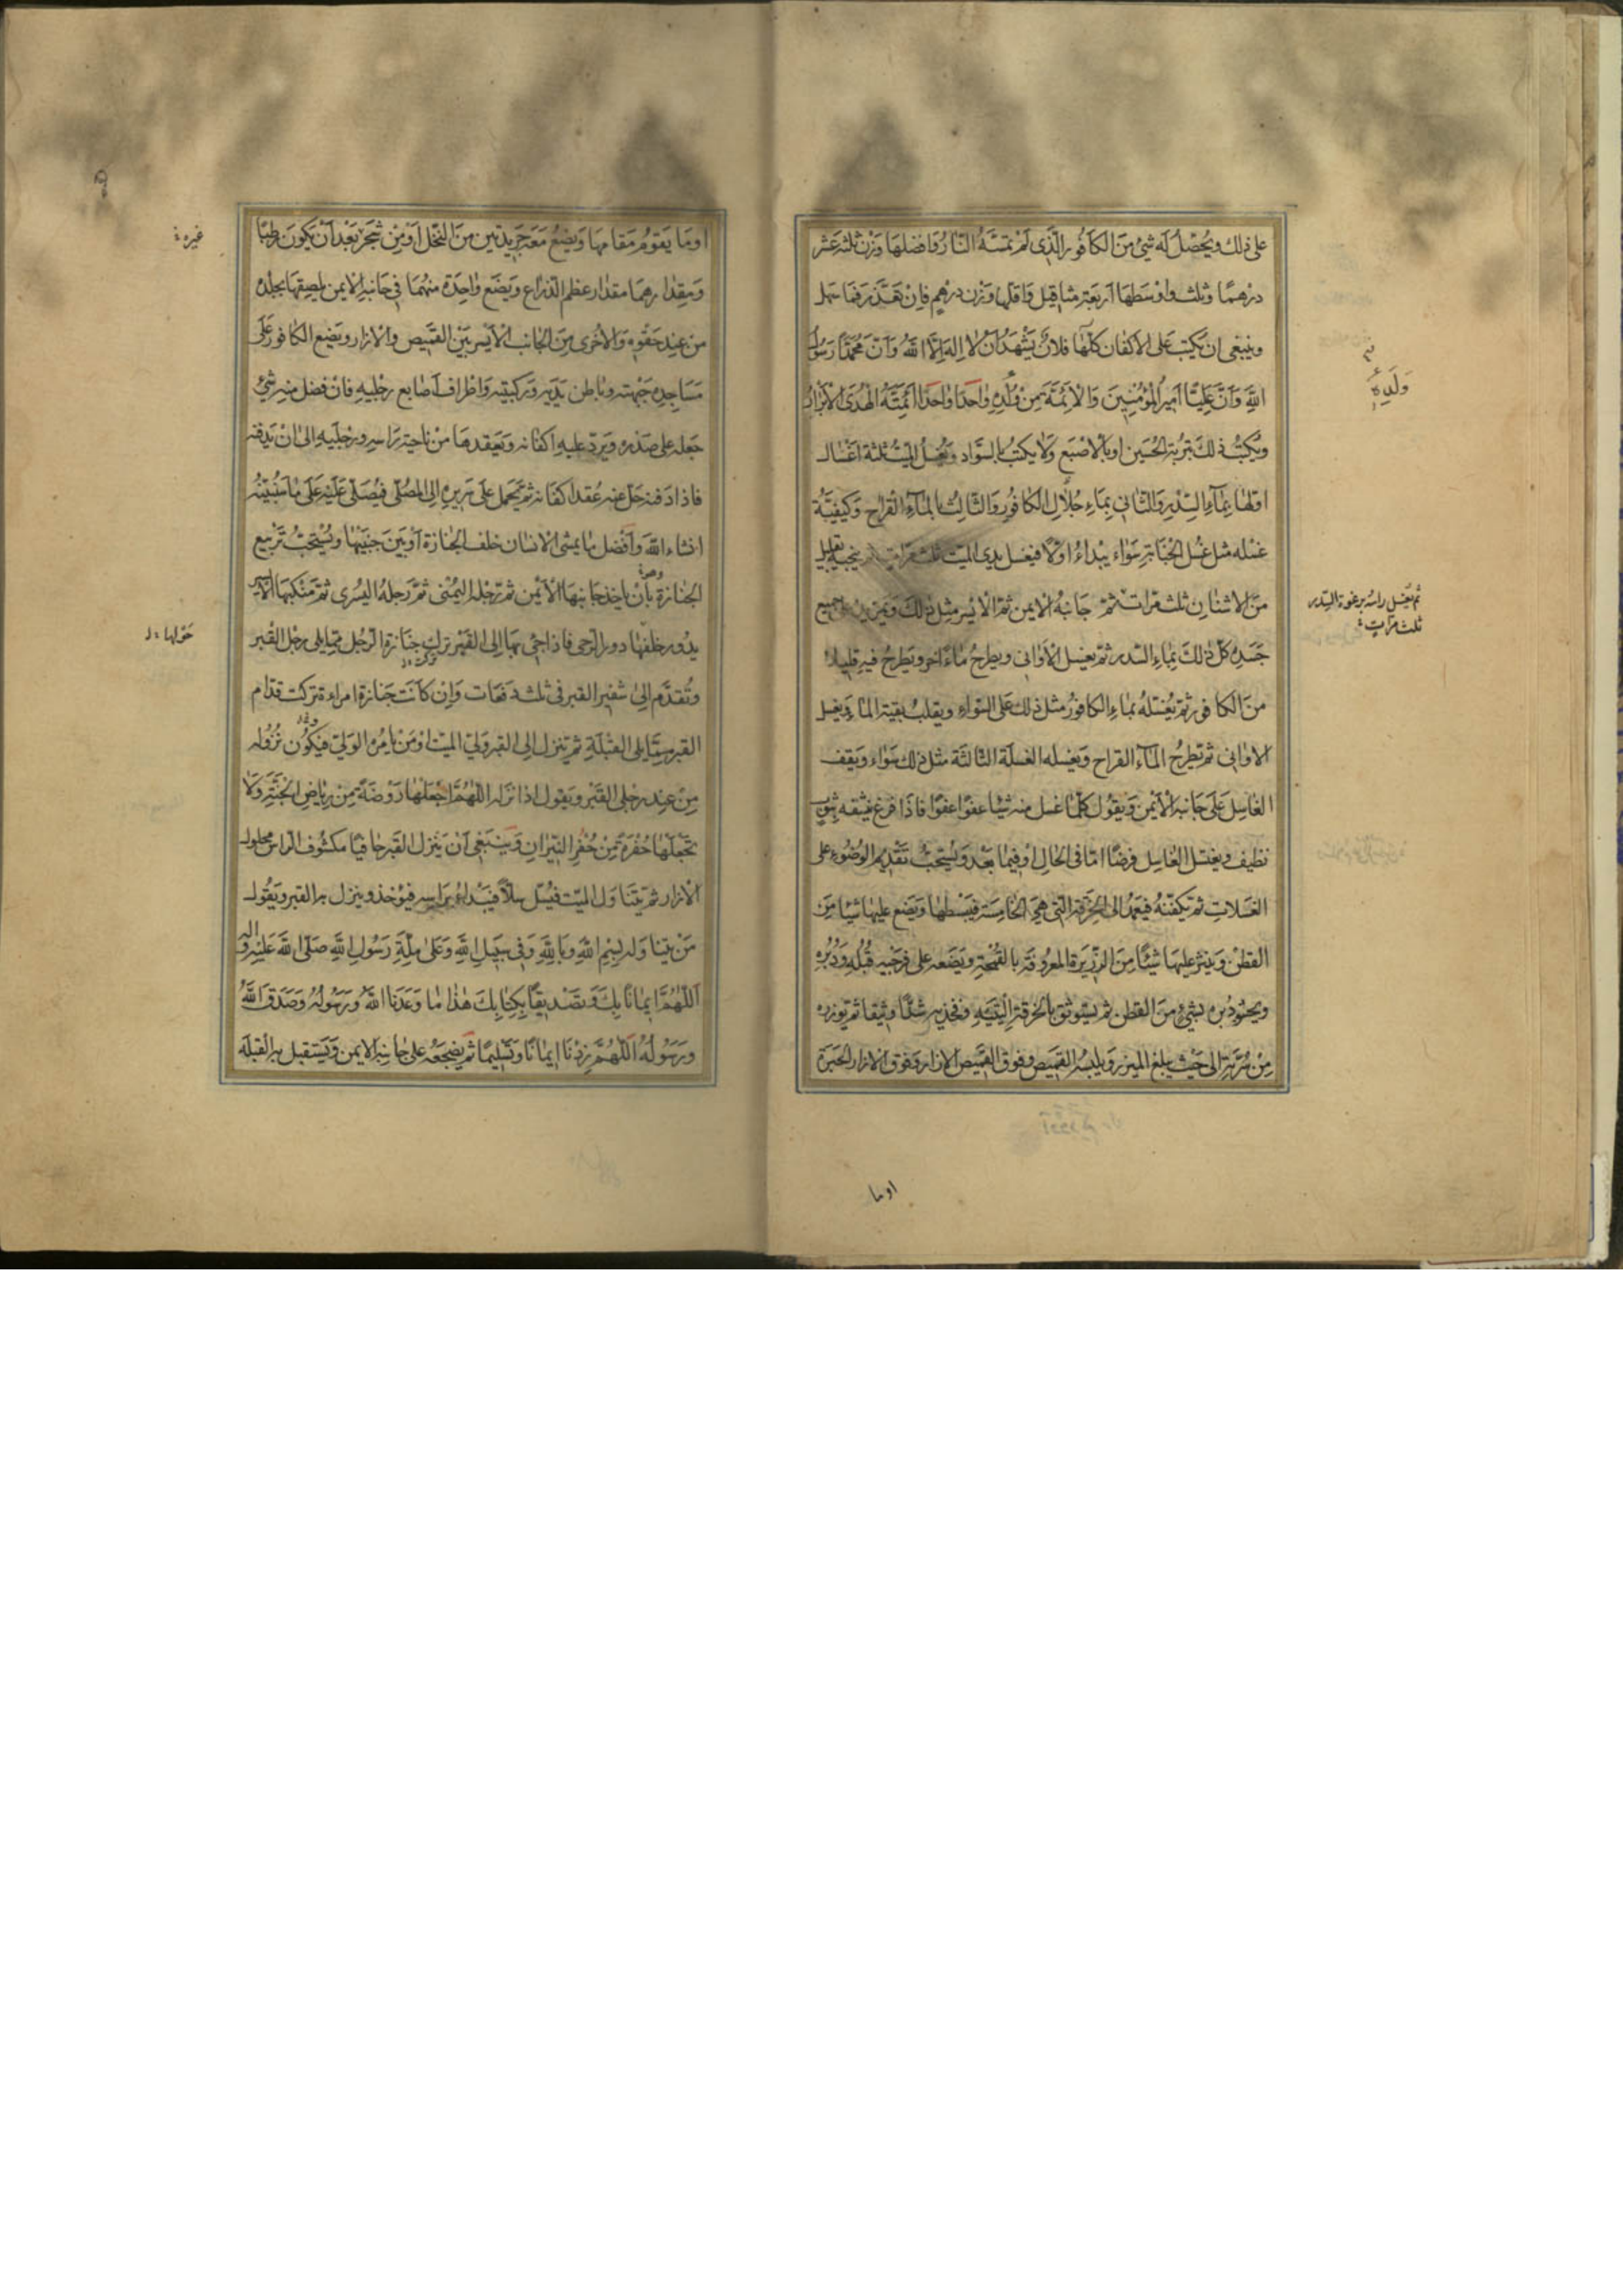 على ذلك ويحصّل له شئ من الكافور الّذى لم تمسّه النّار فافضلها وزن ثلثه عشر
درهمًا وثلث واوسطها اربعة مثاقيل واقلّها وزن درهم فان تعذّر فما سهل
وينبغى ان يكتب على الاكفان كلّها فلان يشهد ان لا اله الّا الله وانّ محمّدًا رسول
الله وانّ عليّا امير المؤمنين والائمّة من ولده واحدا واحدا ائمّة الهدى الابرار
ويكتب ذلك بتربة الحسين او بالاصبع ولا يكتب بالسّواد ويغسل الميّت ثلثة اغسال
اوّلها بماء السّدر والثّانى بماء جلال الكافور والثّالث بالماء القراح وكيفيّة
غسله مثل غسل الجنابة سواء يبداء اوّلا فيغسل يدى الميّت ثلث مرّات ثم ينجيه بقليل
من الاشنان ثلث مرّات ثمّ جانبه الايمن ثمّ الايسر مثل ذلك ويمرّ يده على جميع
جسده كلّ ذلك بماء السّدر ثمّ يغسل الاوانى ويطرح ماء آخر ويطرح فيه قليلا
من الكافور ثمّ يغسّله بماء الكافور مثل ذلك على السّواء ويقلب بقية الماء ويغسل
الاوانى ثم يطرح الماء القراح ويغسله الغسلة الثّالثة مثل ذلك سواء ويقف
الغاسل على جانبه الايمن ويقول كلّما غسل منه شيئا عفوًا عفوًا فاذا فرغ نشّفه بثوب
نظيف ويغتسل الغاسل فرضًا امّا فى الحال او فيما بعد ويستحبّ تقديم الوضوء على
الغسلات ثم يكفّنه فيعمد الى الخرقة الّتى هى الخامسة فيبسطها ويضع عليها شيئا من
القطن وينثر عليها شيئًا من الذّريرة المعروفة بالقمحة ويضعه على فرجيه قبله ودبره
ويحشو دبره بشئ من القطن ثم يستوثق بالخرقة اليتيه وفخذيه شدًّا وثيقا ثمّ يوزره
من سرّته الى حيث يبلغ الميزر ويلبسه القميص وفوق القميص الازار وفوق الازار الحبرة
ولده
ثم يغسل راسه برغوة السّدر
ثلث مرّات
اوما
اوما يقوم مقامها ويضع معه جريدتين من النّخل او من شجر بعد ان يكون رطبا
ومقدارهما مقدار عظم الذّراع ويضع واحدة منهما فى جانبه الايمن يلصقها بجلده
من عند حقوه والاخرى من الجانب الايسر بين القميص والازار ويضع الكافور على
مساجده جبهته وباطن يديه وركبتيه واطراف اصابع رجليه فان فضل منه شئ
جعله على صدره ويردّ عليه اكفانه ويعقدها من ناحية راسه ورجليه الى ان يدفنه
فاذا دفنه حلّ عنه عقد اكفانه ثمّ يحمل على سريره الى المصلّى فيصلّى عليه على ما سنبيّنه
انشاء الله وافضل ما يمشى الانسان خلف الجنازة او بين جنبيها ويستحبّ تربيع
الجنازة بان ياخذ جانبها الايمن ثم رجلها اليمنى ثمّ رجله اليسرى ثمّ منكبها الايسر
يدور خلفها دور الرّحى فاذا جئ بها الى القبر ترك جنازة الرّجل ممّا يلى رجل القبر
وتقدّم الى شفير القبر فى ثلث دفعات وان كانت جنازة امراءة تركت قدّام
القبر ممّا يلى القبلة ثم ينزل الى القبر ولىّ الميّت او من يامره الولىّ فيكون نزوله
من عند رجلى القبر ويقول اذا نزله اللّهمّ اجعلها روضة من رياض الجنّة ولا
تجعلها حفرة من حفر النّيران وينبغى ان ينزل القبر حافيًا مكشوف الراس محلول
الازرار ثم يتناول الميّت فيسلّ سلًّا فيبداء براسه فيؤخذ وينزل به القبر ويقول
من يتناوله بسم الله وبالله وفى سبيل الله وعلى ملّة رسول الله صلّى الله عليه وآله
اللّهمّ ايمانًا بك وتصديقًا بكتابك هذا ما وعدنا الله ورسوله وصدق الله
ورسوله اللّهمّ زدنا ايمانًا وتسليمًا ثم يضجعه على جانبه الايمن ويستقبل به القبلة
غيره
حولها